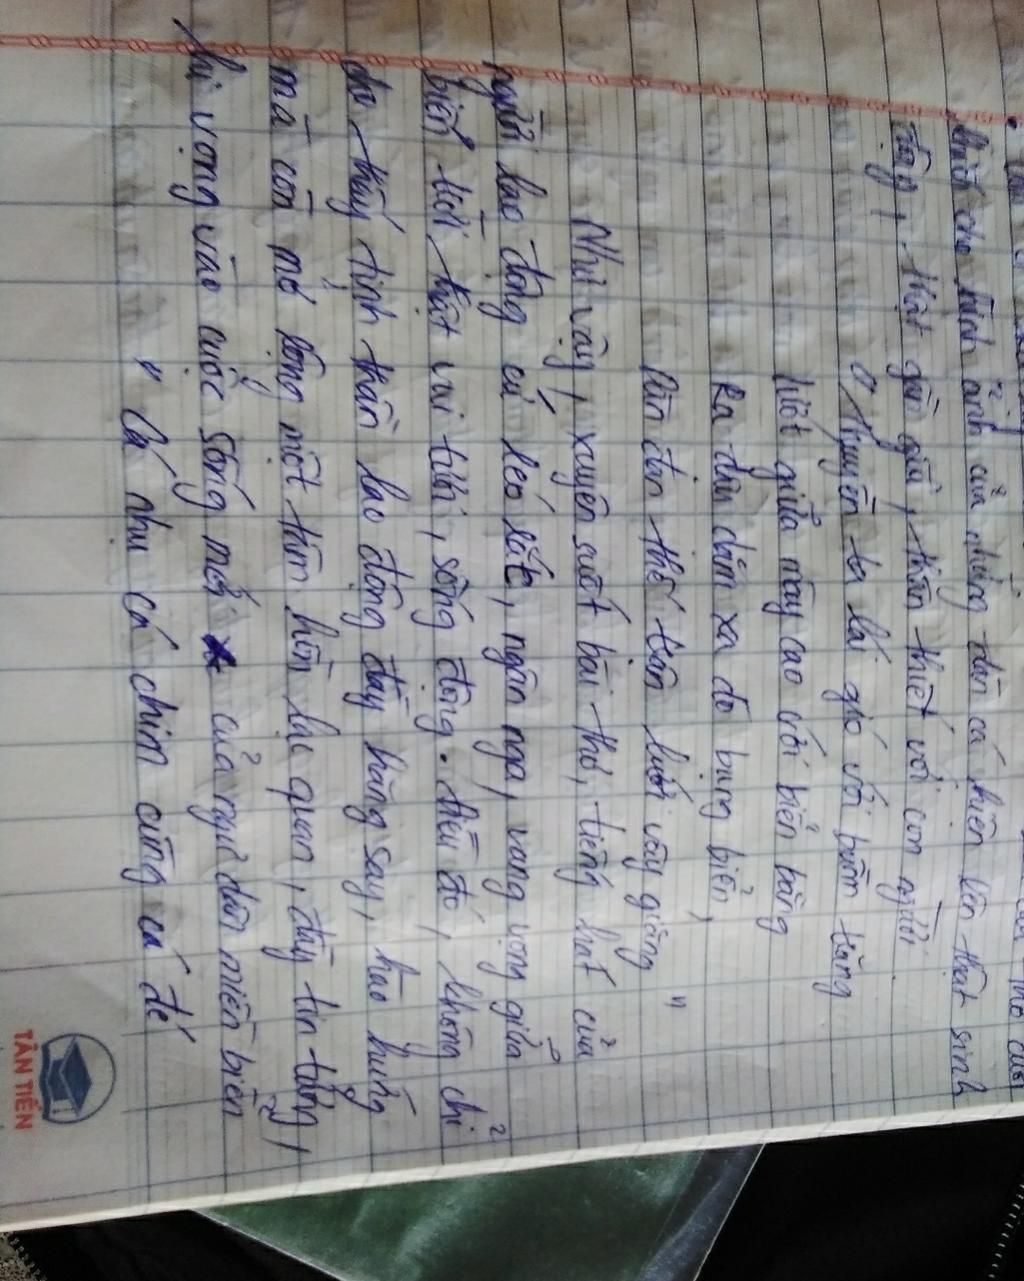 làm cho hình ảnh của những dân cá hiện lên thật sinh
động, thật gần gũi, thân thiết với con người.
" Thuyền ta lái gió với buồm trăng
Lướt giữa mây cao với biển bằng
Ra đậu dặm xa dò bụng biển,
Dàn đan thế trận lưới vây giăng "
Như vậy, xuyên suốt bài thơ, tiếng hát của
người lao động cứ léo lắt, ngân nga, vang vọng giữa
biển trời thật vui tươi, sống động. Điều đó, không chỉ
cho thấy tinh thần lao động đầy hăng say, hào hứng
mà còn mở lòng một tâm hồn lạc quan, đầy tin tưởng,
hi vọng vào cuộc sống mới của ngư dân miền biển
" Cá nhụ cá chim cùng cá đé
TÂN TIẾN